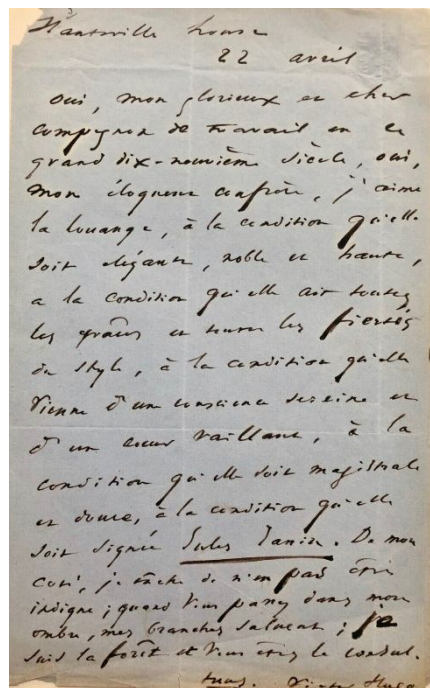 Hauteville house
22 avril
Oui, mon glorieux et cher
compagnon de travail en ce
grand dix-neuvième siècle, oui,
mon éloquent confrère, j'aime
la louange, à la condition qu'elle
soit élégante, noble et haute,
a la condition qu'elle ait toutes
les grâces et toutes les fiertés
du style, à la condition qu'elle
vienne d'une conscience sereine et
d'un cœur vaillant, à la
condition qu'elle soit magistrale
et douce, à la condition qu'elle
soit signée Jules Janin. De mon
côté, je tâche de n'en pas être
indigne ; quand vous passez dans mon
ombre, mes branches saluent ; je
suis la forêt et vous êtes le consul.
tuus. Victor Hugo